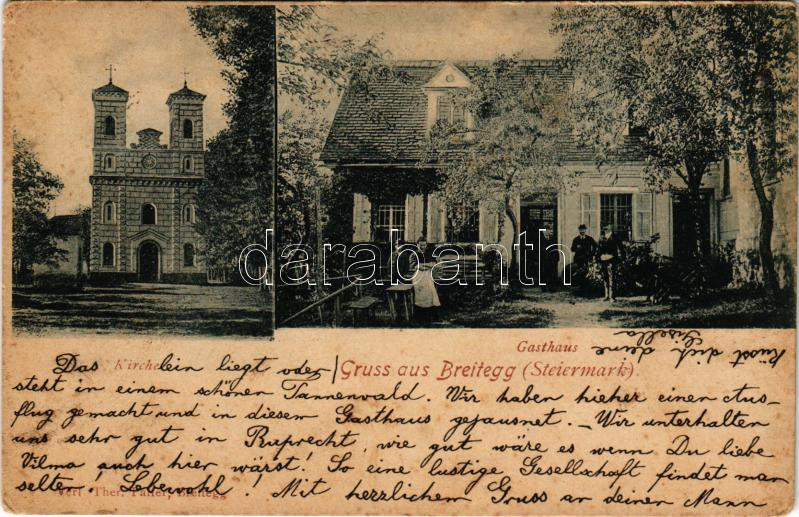 darabanth.com
Gasthaus
Küsst dich deine
Gisella
Das Kirchelein liegt oder Gruss aus Breitegg (Steiermark).
steht in einem schönen Tannenwald. Wir haben hieher einen Aus-
flug gemacht und in diesem Gasthaus gejausnet. – Wir unterhalten
uns sehr gut in Ruprecht, wie gut wäre es wenn Du liebe
Vilma auch hier wärst! So eine lustige Gesellschaft findet man
selten! Lebewohl! Mit herzlichem Gruss an deinen Mann
Verl. Ther. Breitegg